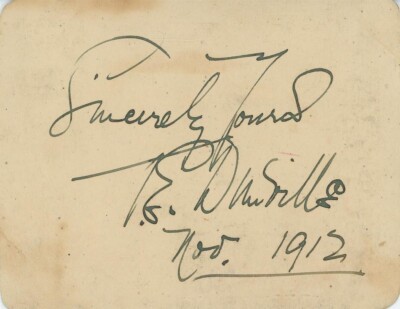 Sincerely Yours
T.E. Dunville
Nov. 1912